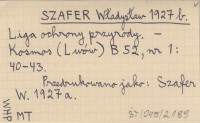 SZAFER Władysław 1927 b.
Liga ochrony przyrody. –
Kosmos (Lwów) B 52, nr 1:
40-43.
Przedrukowano jako: Szafer
W. 1927a.
WHP
MT